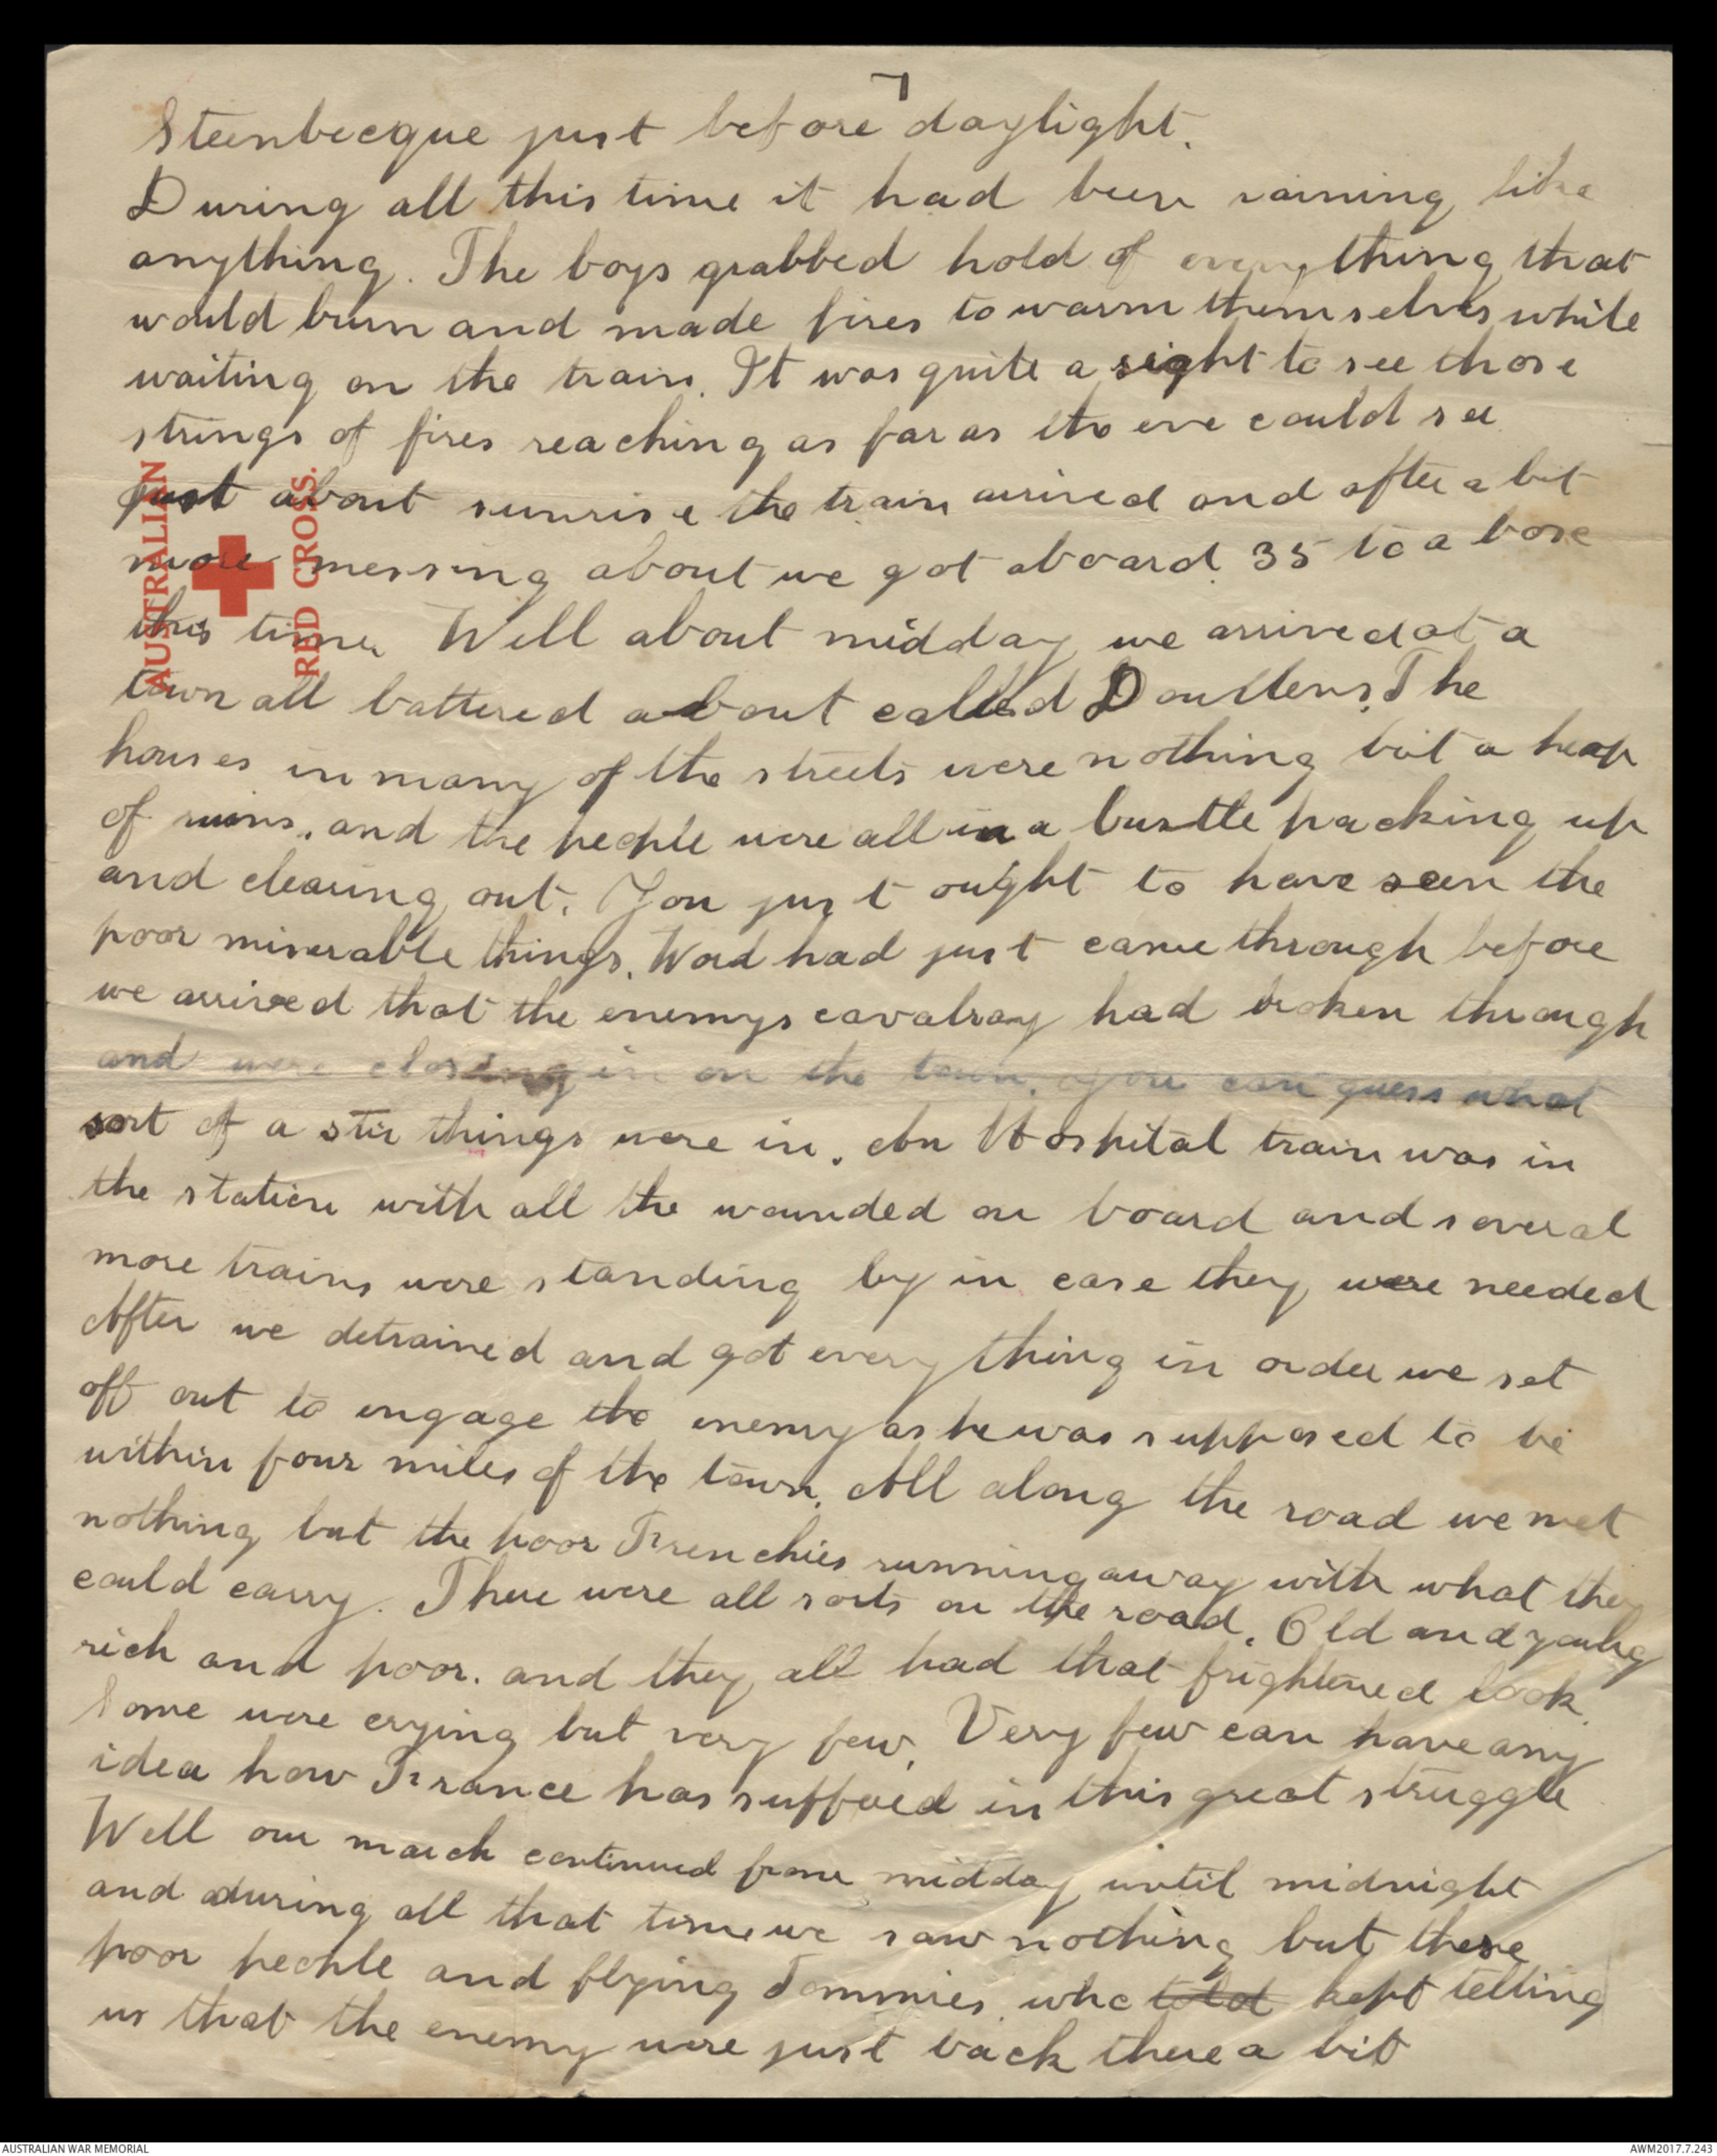 7
Steenbecque just before daylight.
During all this time it had been raining like
anything. The boys grabbed hold of everything that
would burn and made fires to warm themselves while
waiting on the train. It was quite a sight to see those
strings of fires reaching as far as the eye could see
Just about sunrise the train arrived and after a bit
more messing about we got aboard. 35 to a box
this time. Well about midday we arrived at a
town all battered about called Doullens. The
houses in many of the streets were nothing but a heap
of ruins, and the people were all in a bustle packing up
and clearing out. You just ought to have seen the
poor miserable things. Word had just came through before
we arrived that the enemys cavalray had broken through
and were closing in on the town. you can guess what
sort of a stir things were in. An Hospital train was in
the station with all the wounded on board and several
more trains were standing by in case they were needed
After we detrained and got everything in order we set
off out to engage the enemy as he was supposed to be
within four miles of the town. All along the road we met
nothing but the poor Frenchies running away with what they
could carry. There were all sorts on the road. Old and young
rich and poor. and they all had that frightened look.
Some were crying but very few. Very few can have any
idea how France has suffered in this great struggle
Well our march continued from midday until midnight
and during all that time we saw nothing but these
poor people and flying Tommies who told kept telling
us that the enemy were just back there a bit
AUSTRALIAN
RED CROSS.
AUSTRALIAN WAR MEMORIAL
AWM2017.7.243